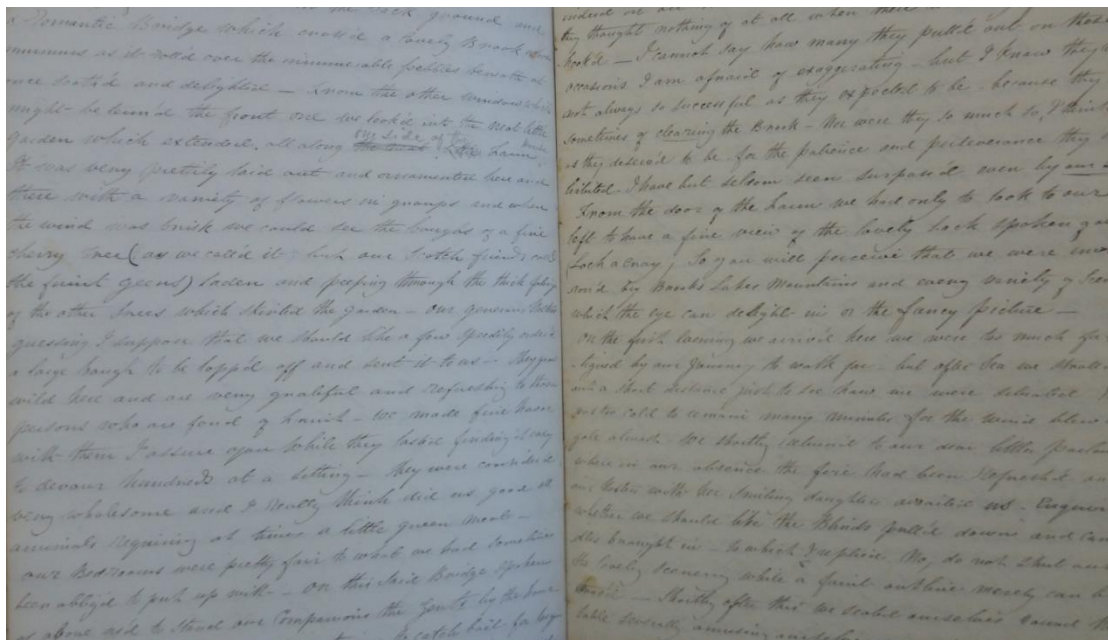 the back ground and
a Romantic Bridge which cross'd a lovely Brook
as it roll'd over the innumerable pebbles beneath at
once sooth'd and delighted — From the other window which
might be term'd the front one we look'd into the neat little
one side of the
garden which extended all along the Farm
It was very prettily laid out and ornamented here and
there with a variety of flowers in groups and when
the wind was brisk we could see the boughs of a fine
cherry tree (as we call'd it but our Scotch friends call'd
the fruit geens) laden and peeping through the thick foliage
of the other trees which skirted the garden — our generous
guessing I suppose that we should like a few speedily order'd
a large bough to be lopp'd off and sent it to us — They grow
wild here and are very grateful and refreshing to those
persons who are fond of fruit — we made fine
with them I assure you while they lasted finding it easy
to devour hundreds at a sitting — They were consider'd
very wholesome and I really think did us good as
animals requiring at times a little green meat —
our Bedrooms were pretty fair to what we had sometimes
been oblig'd to put up with — on this said Bridge spoken
of above us'd to stand our Companions the Gents by the hour
to catch bait for
indeed
they thought nothing of at all when
hook'd — I cannot say how many they pull'd out on these
occasions I am afraid of exaggerating — but I know they
not always so successful as they expected to be, because they
sometimes of clearing the Brook — Nor were they so much so, I think
as they deserv'd to be for the patience and perseverance they
hibited I have but seldom seen surpass'd even by our
From the door of the Farm we had only to look to our
left to have a fine view of the lovely Loch spoken of
Loch acray, So you will perceive that we were
round by Brooks Lakes Mountains and every variety of
which the eye can delight in or the fancy picture —
on the first evening we arriv'd here we were too much
-tigued by our Journey to walk far — but after Tea we
out a short distance just to see how we were situated
too cold to remain many minutes for the wind blew
gale almost — We shortly return'd to our dear little
where in our absence the fire had been replenish'd and
our Hostess with her smiling daughter awaited us —
whether we should like the Blinds pull'd down and
brought in — to which I replied No, do not shut out
the lovely scenery while a faint outline merely can be
— Shortly after this we seated ourselves round the
table severally amusing ourselves